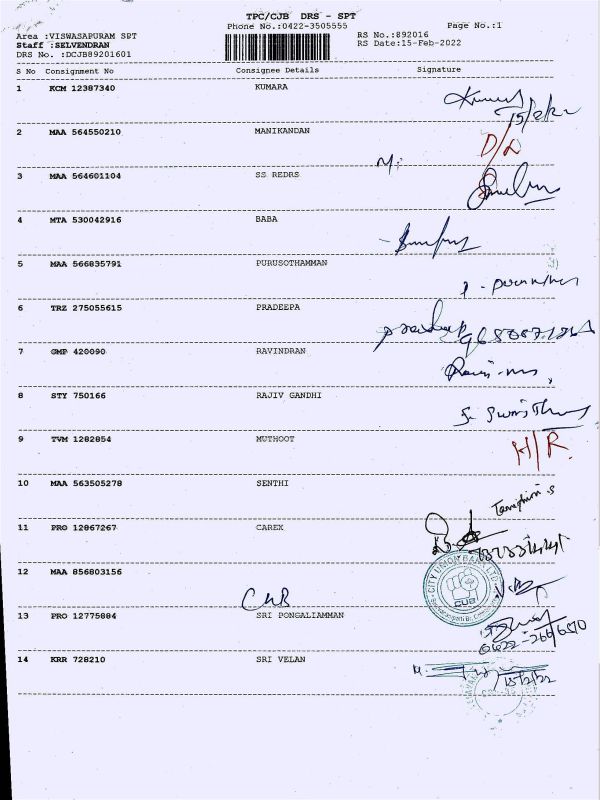 TPC/CJB DRS - SPT
Phone No.:0422-3505555 Page No.:1
Area :VISWASAPURAM SPT RS No.:892016
Staff :SELVENDRAN RS Date:15-Feb-2022
DRS No. :DCJB89201601
S No Consignment No Consignee Details Signature
1 KCM 12387340 KUMARA
15/2/22
2 MAA 564550210 MANIKANDAN D/L
3 MAA 564601104 SS REDRS
4 MTA 530042916 BABA
5 MAA 566835791 PURUSOTHAMMAN
6 TRZ 275055615 PRADEEPA
pradeep
7 GMP 420090 RAVINDRAN
8 STY 750166 RAJIV GANDHI
9 TVM 1282854 MUTHOOT H/R
10 MAA 563505278 SENTHI
11 PRO 12867267 CAREX
12 MAA 856803156 CUB
CITY UNION BANK LTD.
CUB
13 PRO 12775884 SRI PONGALIAMMAN
14 KRR 728210 SRI VELAN
15/2/22